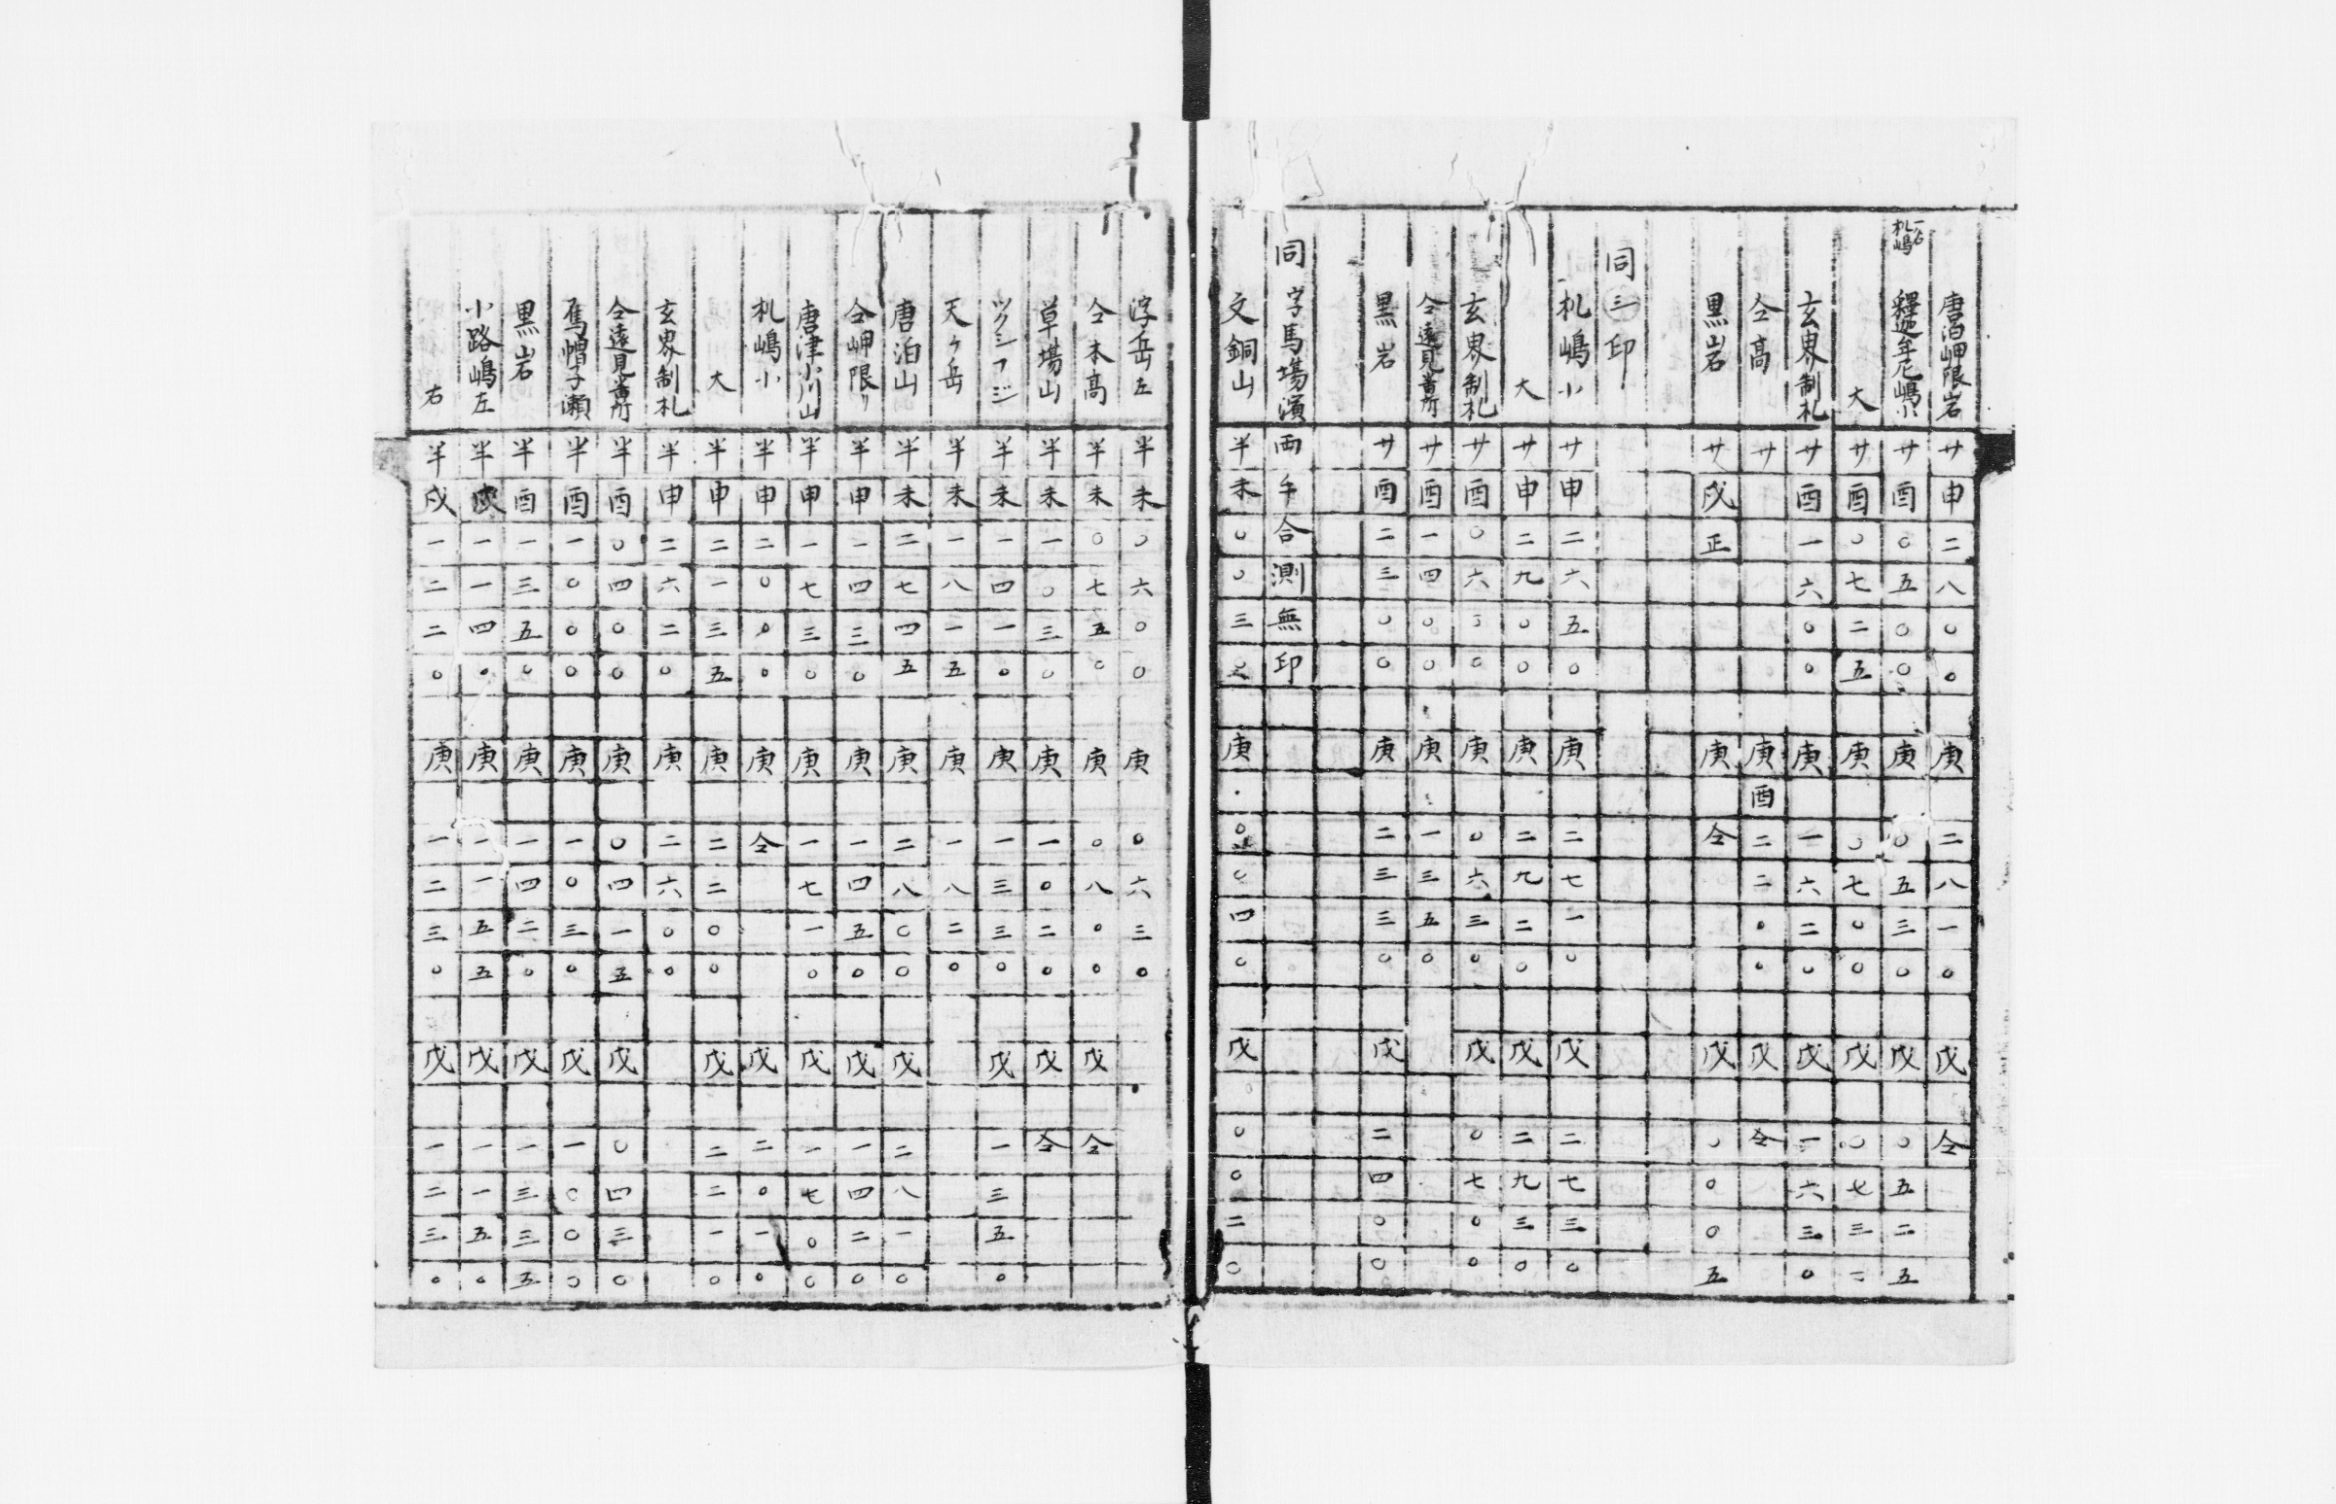 唐泊岬限岩 廿申二八〇〇 庚二八一〇 戊仝
札嶋 釋迦牟尼嶋小 廿酉〇五〇〇 庚〇五三〇 戊〇五二五
大 廿酉〇七二五 庚〇七〇〇 戊〇七三二
玄界制札 廿酉一六〇〇 庚一六二〇 戊一六三〇
仝高 廿 庚酉二二〇〇 戊仝
黒岩 廿戌正 庚仝 戊〇〇〇五
同㊂印
札嶋小 廿申二六五〇 庚二七一〇 戊二七三〇
大 廿申二九〇〇 庚二九二〇 戊二九三〇
玄界制札 廿酉〇六〇〇 庚〇六三〇 戊〇七〇〇
仝遠見番所 廿酉一四〇〇 庚一三五〇
黒岩 廿酉二三〇〇 庚二三三〇 戊二四〇〇
同字馬場濱両手合測無印
文銅山 半未〇〇三 庚〇〇四〇 戊〇〇二〇
浮岳左 半未〇六〇〇 庚〇六三〇
仝本高 半未〇七五〇 庚〇八〇〇 戊仝
草場山 半未一〇三〇 庚一〇二〇 戊仝
ツクシフジ 半未一四一〇 庚一三三〇 戊一三五〇
天ヶ岳 半未一八一五 庚一八二〇
唐泊山 半未二七四五 庚二八〇〇 戊二八一〇
仝岬限リ 半申一四三〇 庚一四五〇 戊一四二〇
唐津小川山 半申一七三〇 庚一七一〇 戊一七〇〇
札嶋小 半申二〇〇〇 庚仝 戊二〇一〇
大 半申二一三五 庚二二〇〇 戊二二一〇
玄界制札 半申二六二〇 庚二六〇〇
仝遠見番所 半酉〇四〇〇 庚〇四一五 戊〇四三〇
烏帽子瀬 半酉一〇〇〇 庚一〇三〇 戊一〇〇〇
黒岩 半酉一三五〇 庚一四二〇 戊一三三五
小路嶋左 半戌一一四〇 庚一一五五 戊一一五〇
右 半戌一二二〇 庚一二三〇 戊一二三〇